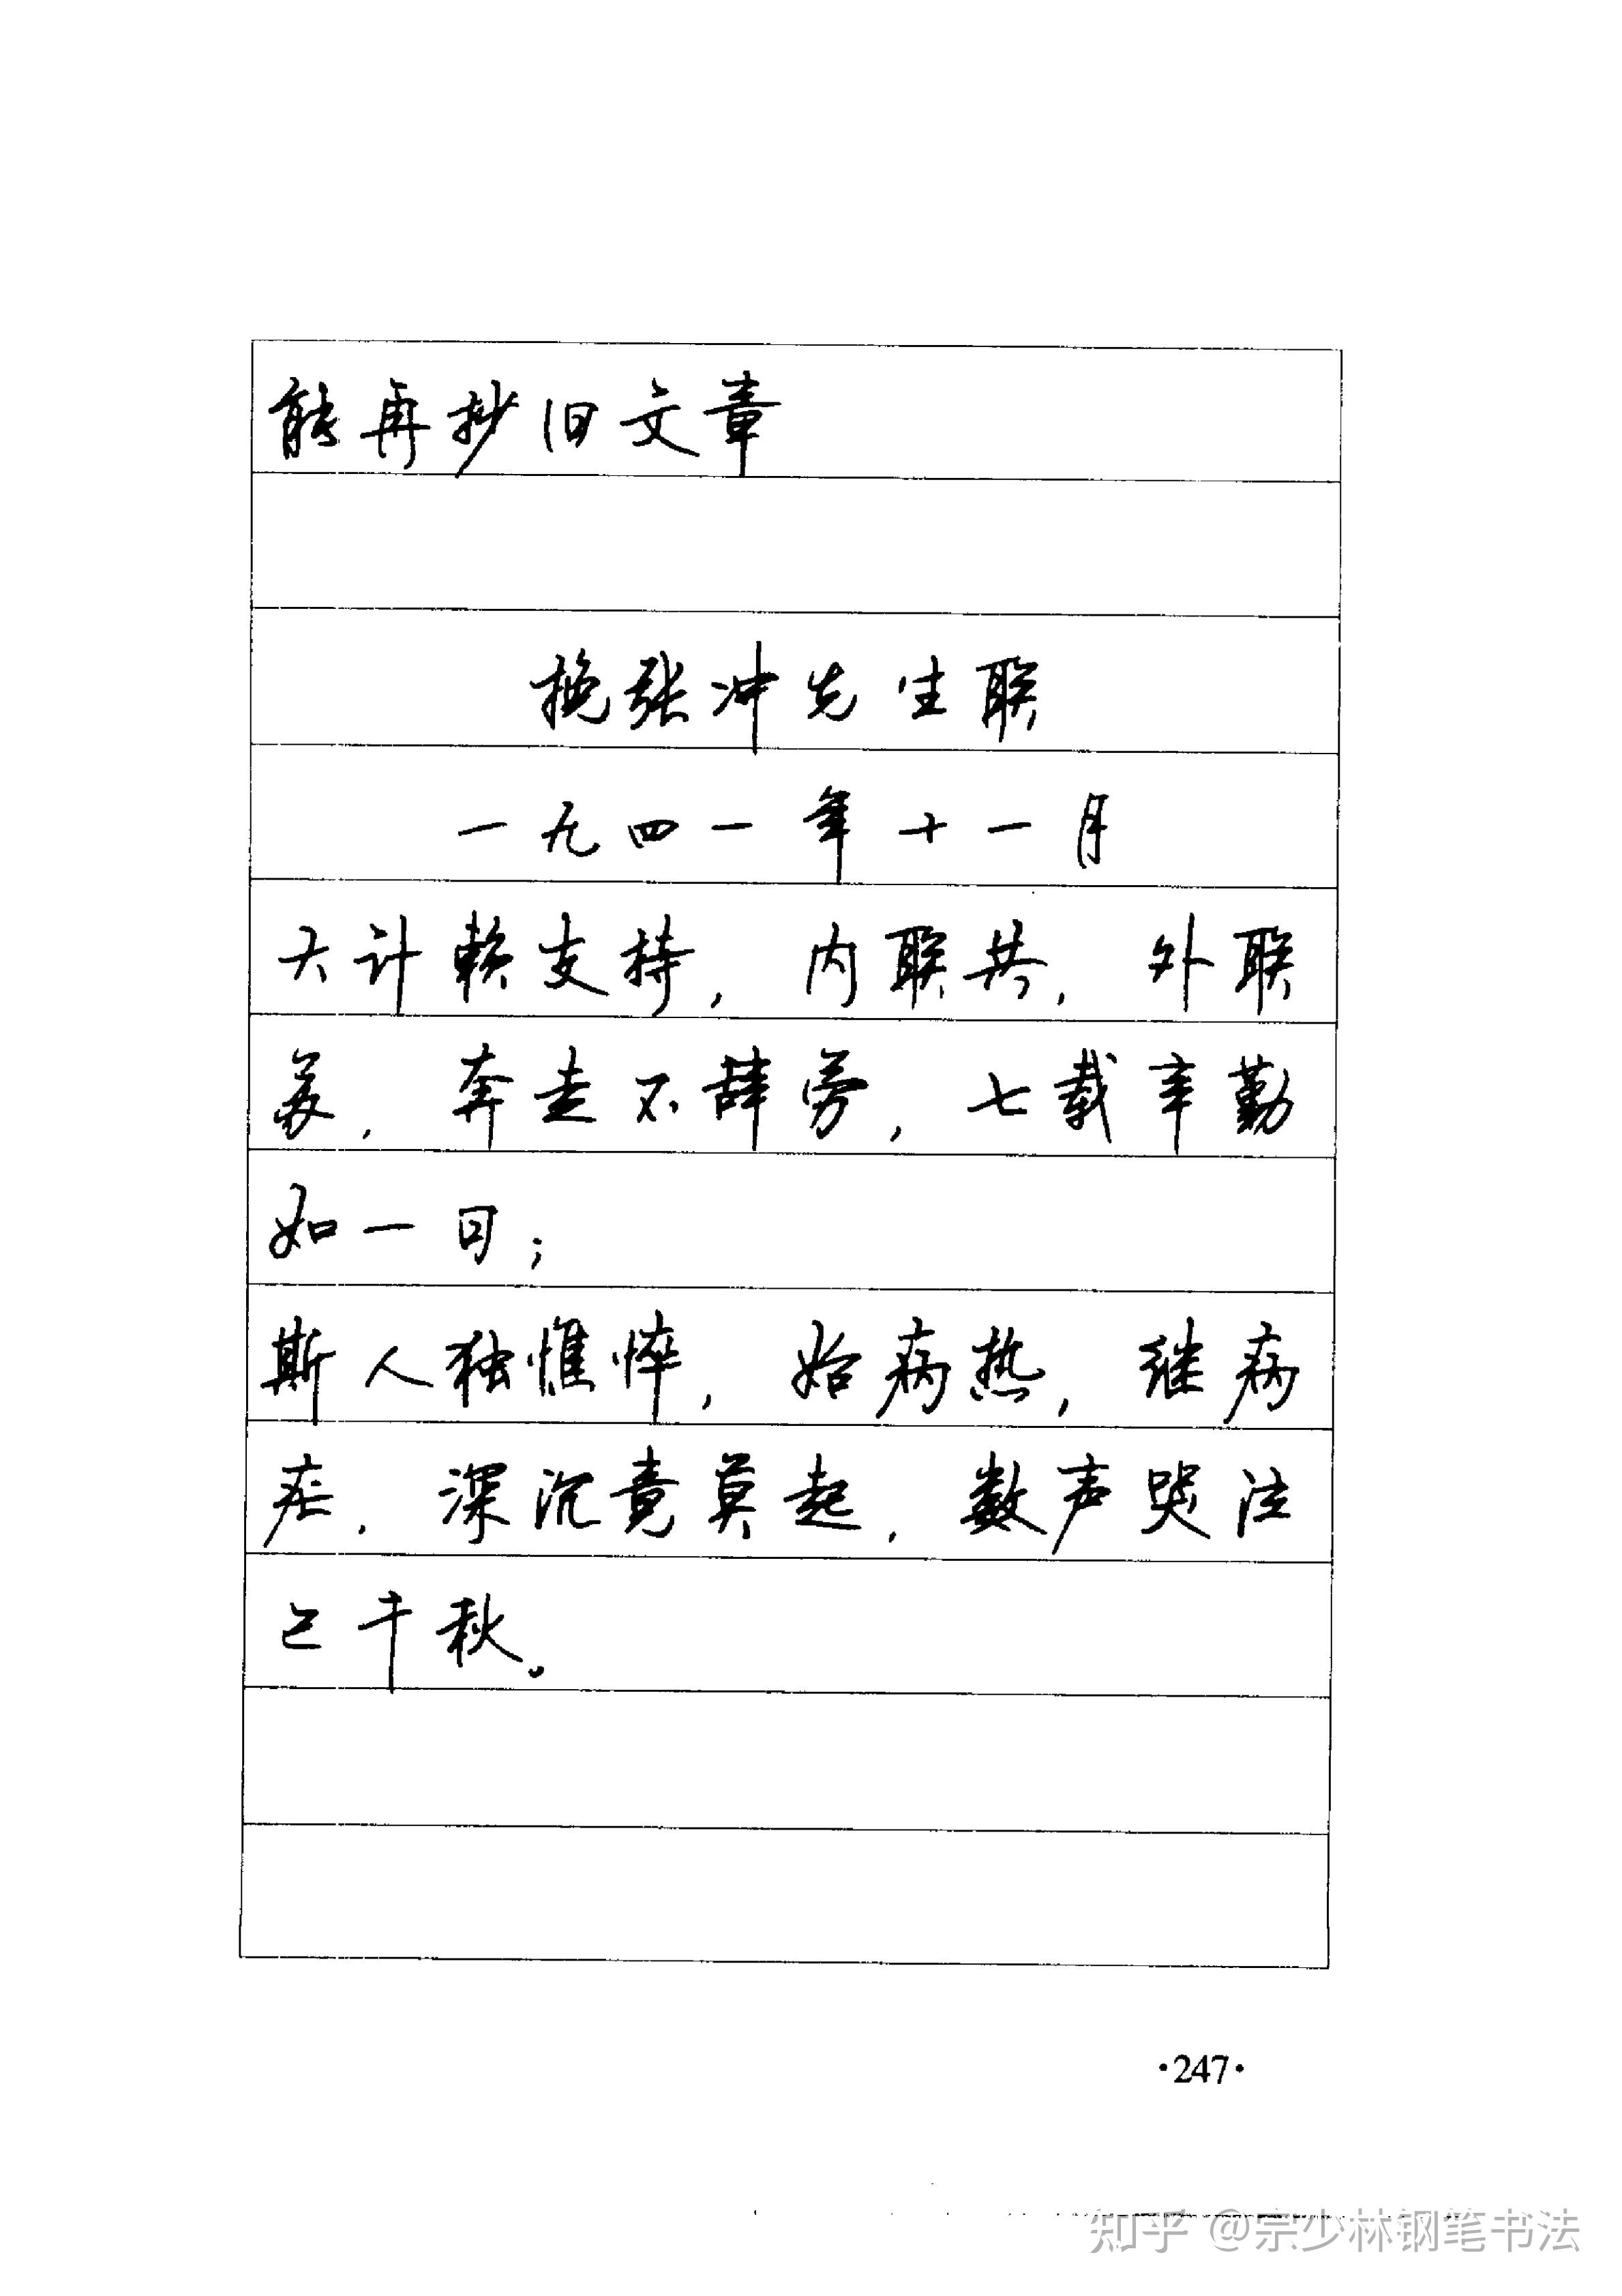 能再抄旧文章
挽张冲先生联
一九四一年十一月
大计赖支持，内联共，外联
苏，奔走不辞劳，七载辛勤
如一日；
斯人独憔悴，始病热，继病
疟，深沉竟莫起，数声哭泣
已千秋。
·247·
知乎 @宗少林钢笔书法